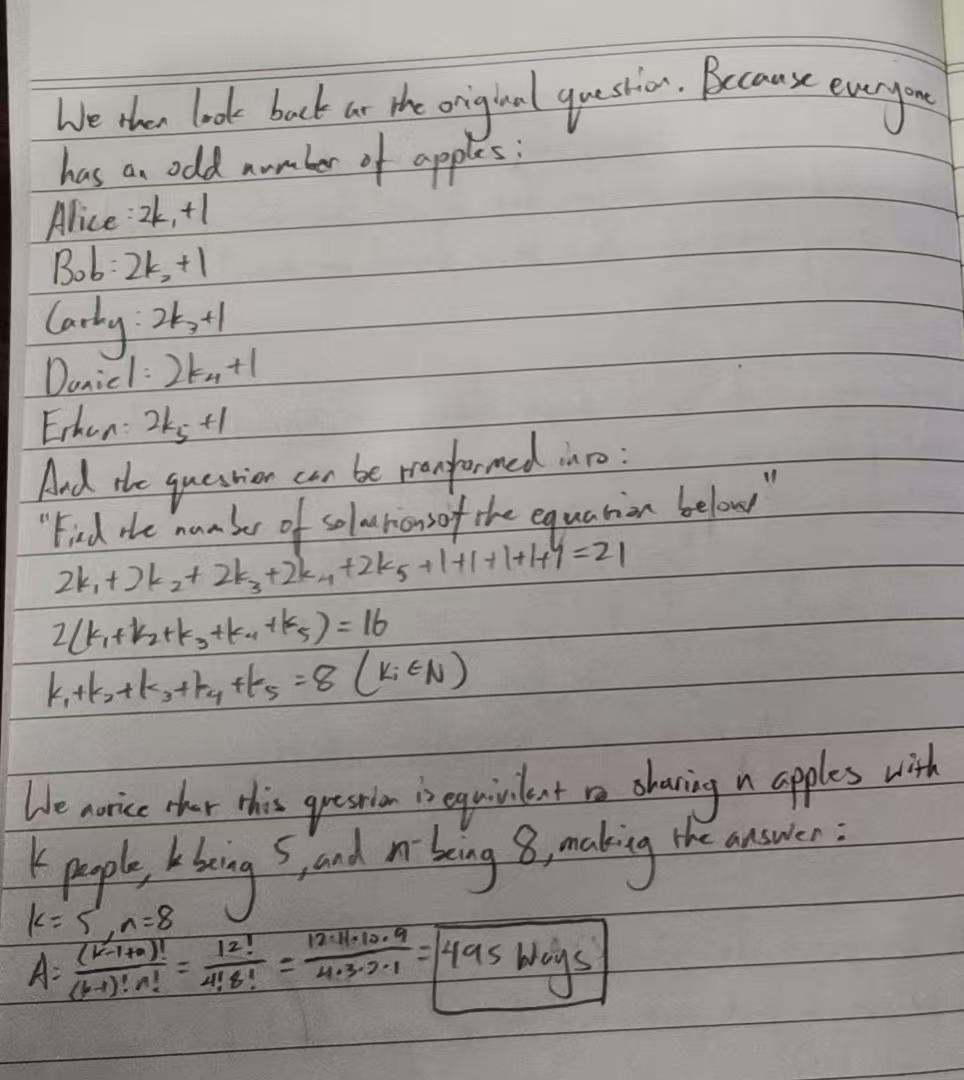 We then look back at the original question. Because everyone
has an odd number of apples:
Alice: 2k₁+1
Bob: 2k₂+1
Carhy: 2k₃+1
Daniel: 2k₄+1
2k₅+1
And the question can be tranformed into:
"Find the number of solutions of the equation below"
2k₁+2k₂+2k₃+2k₄+2k₅+1+1+1+1+1=21
2(k₁+k₂+k₃+k₄+k₅)=16
k₁+k₂+k₃+k₄+k₅=8 (Ki∈N)
We notice that this question is equivilent to sharing n apples with
k people, k being 5, and n being 8, making the answer:
k=5, n=8
A= (k-1+n)!/(k-1)!n! = 12!/4!8! = 12·11·10·9/4·3·2·1 = 495 Ways